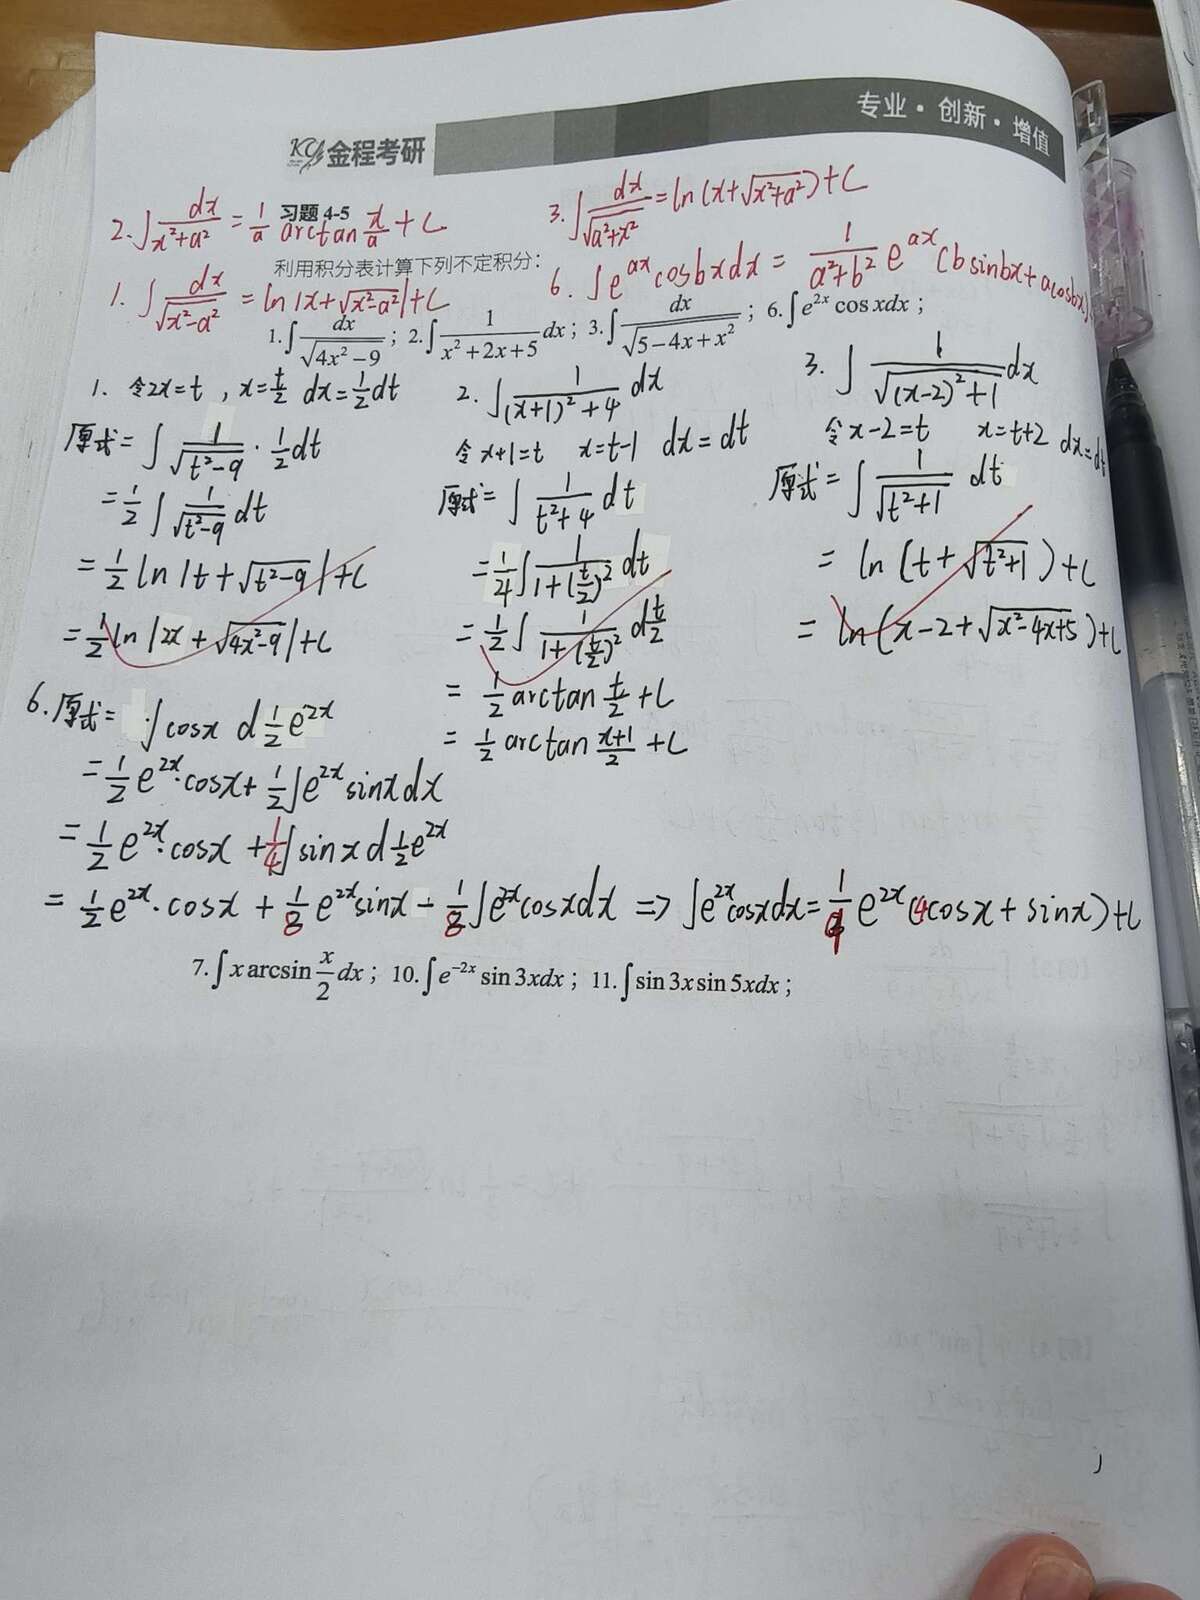 专业·创新·增值
KY 金程考研
2. ∫ dx/(x²+a²) = 1/a arctan x/a + C
习题 4-5
3. ∫ dx/√(a²+x²) = ln(x+√(x²+a²))+C
利用积分表计算下列不定积分：
1. ∫ dx/√(x²-a²) = ln|x+√(x²-a²)|+C
6. ∫e^{ax}cosbxdx = 1/(a²+b²) e^{ax}(bsinbx+acosbx)
1.∫ dx/√(4x²−9)； 2.∫ 1/(x²+2x+5) dx； 3.∫ dx/√(5−4x+x²)； 6.∫e^{2x} cos xdx；
1. 令2x=t , x=t/2 dx=1/2dt
原式=∫ 1/√(t²-9) · 1/2dt
=1/2 ∫ 1/√(t²-9) dt
=1/2 ln|t+√(t²-9)|+C
=1/2 ln|2x+√(4x²-9)|+C
2. ∫ 1/((x+1)²+4) dx
令x+1=t x=t-1 dx=dt
原式=∫ 1/(t²+4) dt
=1/4∫ 1/(1+(t/2)²) dt
=1/2∫ 1/(1+(t/2)²) d t/2
=1/2 arctan t/2 +C
=1/2 arctan (x+1)/2 +C
3. ∫ 1/√((x-2)²+1) dx
令x-2=t x=t+2 dx=dt
原式=∫ 1/√(t²+1) dt
=ln(t+√(t²+1))+C
=ln(x-2+√(x²-4x+5))+C
6.原式=∫cosx d 1/2 e^{2x}
=1/2 e^{2x}·cosx+1/2∫e^{2x}sinxdx
=1/2 e^{2x}·cosx+1/4∫sinx d 1/2 e^{2x}
=1/2 e^{2x}·cosx+1/8 e^{2x}sinx-1/8∫e^{2x}cosxdx ⇒ ∫e^{2x}cosxdx=1/9 e^{2x}(4cosx+sinx)+C
7.∫x arcsin x/2 dx； 10.∫e^{−2x} sin 3xdx； 11.∫sin 3x sin 5xdx；